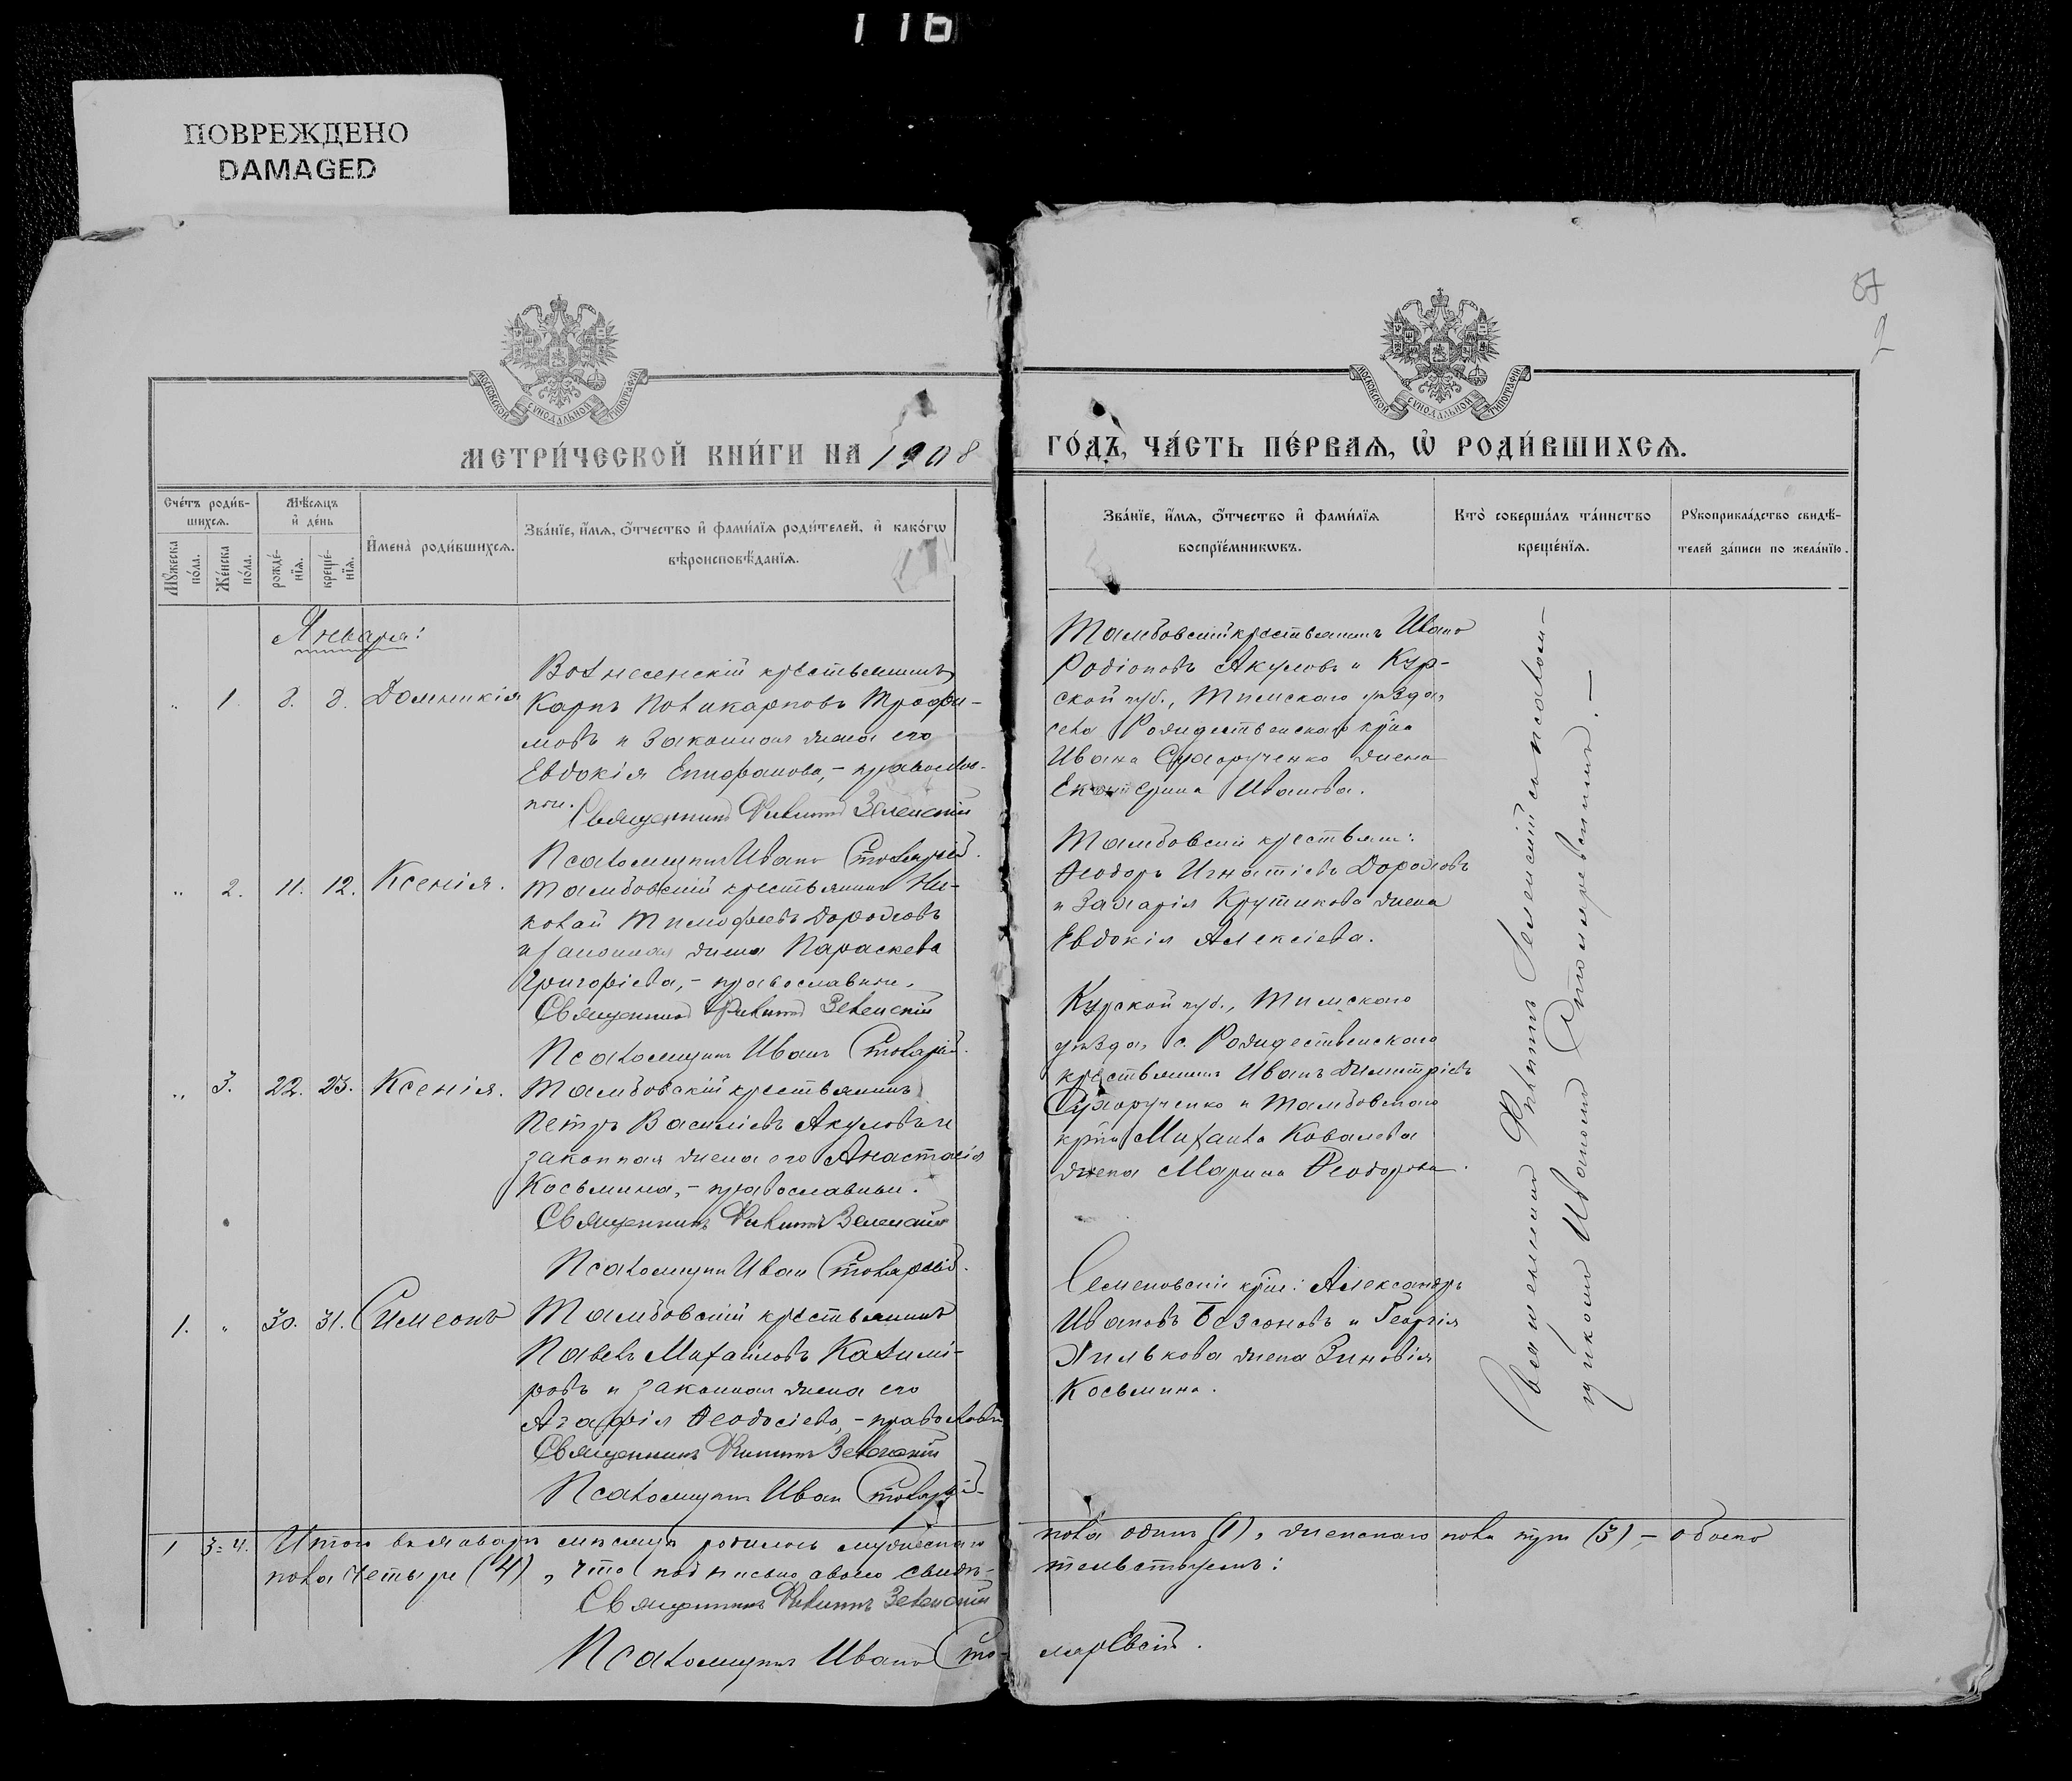 116
ПОВРЕЖДЕНО
DAMAGED
87
2
МОСКОВСКОЙ СѴНОДАЛЬНОЙ ТИПОГРАФІИ
МОСКОВСКОЙ СѴНОДАЛЬНОЙ ТИПОГРАФІИ
МЕТРИ́ЧЕСКОЙ КНИ́ГИ НА 1908
ГО́ДЪ, ЧА́СТЬ ПЕ́РВАѦ, Ѡ҆ РОДИ́ВШИХСѦ.
Сче́тъ роди́в-
шихсѧ.
Мꙋ́жеска по́ла.
Же́нска по́ла.
Мѣ́сѧцъ
и҆ де́нь
рожде́-
нїѧ.
креще́-
нїѧ.
И҆мена̀ роди́вшихсѧ.
Зва́нїе, и҆́мѧ, ѻ҆́тчество и҆ фами́лїѧ роди́телей, и҆ како́гѡ
вѣроисповѣ́данїѧ.
Зва́нїе, и҆́мѧ, ѻ҆́тчество и҆ фами́лїѧ
воспрїе́мникѡвъ.
Кто̀ соверша́лъ та́инство
креще́нїѧ.
Рꙋкоприкла́дство свидѣ́-
телей за́писи по жела́нїю.
Января:
„ 1. 8. 8. Домникія
Вознесенскій крестьянинъ
Карпъ Поликарповъ Трофи-
мовъ и законная жена его
Евдокія Епифанова, - православ-
ны.
Священникъ Филиппъ Зеленскій
Псаломщикъ Иванъ Столярев.
Тамбовскій крестьянинъ Иванъ
Родіоновъ Акуловъ и Кур-
ской губ., Тимскаго уѣзда,
села Рождественскаго кр-на
Ивана Сухорученко жена
Екатерина Иванова.
„ 2. 11. 12. Ксенія.
Тамбовскій крестьянинъ Ни-
колай Тимофеевъ Дороховъ
и законная жена Параскева
Григоріева, - православны.
Священникъ Филиппъ Зеленскій
Псаломщикъ Иванъ
Тамбовскій крестьян:
Ѳеодоръ Игнатіевъ Дороховъ
и Захарія Крутикова жена
Евдокія Алексіева.
„ 3. 22. 23. Ксенія.
Тамбовскій крестьянинъ
Петръ Василіевъ Акуловъ и
законная жена его Анастасія
Косьмина, - православны.
Священникъ Филиппъ Зеленскій
Псаломщикъ Иван
Курской губ., Тимскаго
уѣзда, с. Рождественскаго
крестьянинъ Иванъ Димитріевъ
Сухорученко и Тамбовскаго
кр-на Михаила Ковалева
жена Марина Ѳеодорова.
1. „ 30. 31. Симеонъ
Тамбовскій крестьянинъ
Павелъ Михайловъ Казими-
ровъ и законная жена его
Агафія Ѳеодосіева, - православн
Священникъ Филиппъ Зеленскій
Псаломщикъ Иван
Семеновскій кр-нъ: Александръ
Ивановъ Безсоновъ и Георгія
Хилькова жена Зиновія
Косьмина.
Священникъ Филиппъ Зеленскій съ псалом-
щикомъ Иваномъ Столяревскимъ. —
1 3=4. Итого въ январѣ мѣсяцѣ родилось мужескаго
пола одинъ (1), женскаго пола три (3), - обоего
пола четыре (4), что подписью своею свидѣ-
тельствуемъ:
Священникъ Филиппъ Зеленскій
Псаломщикъ Иванъ Сто-
ляревскій.